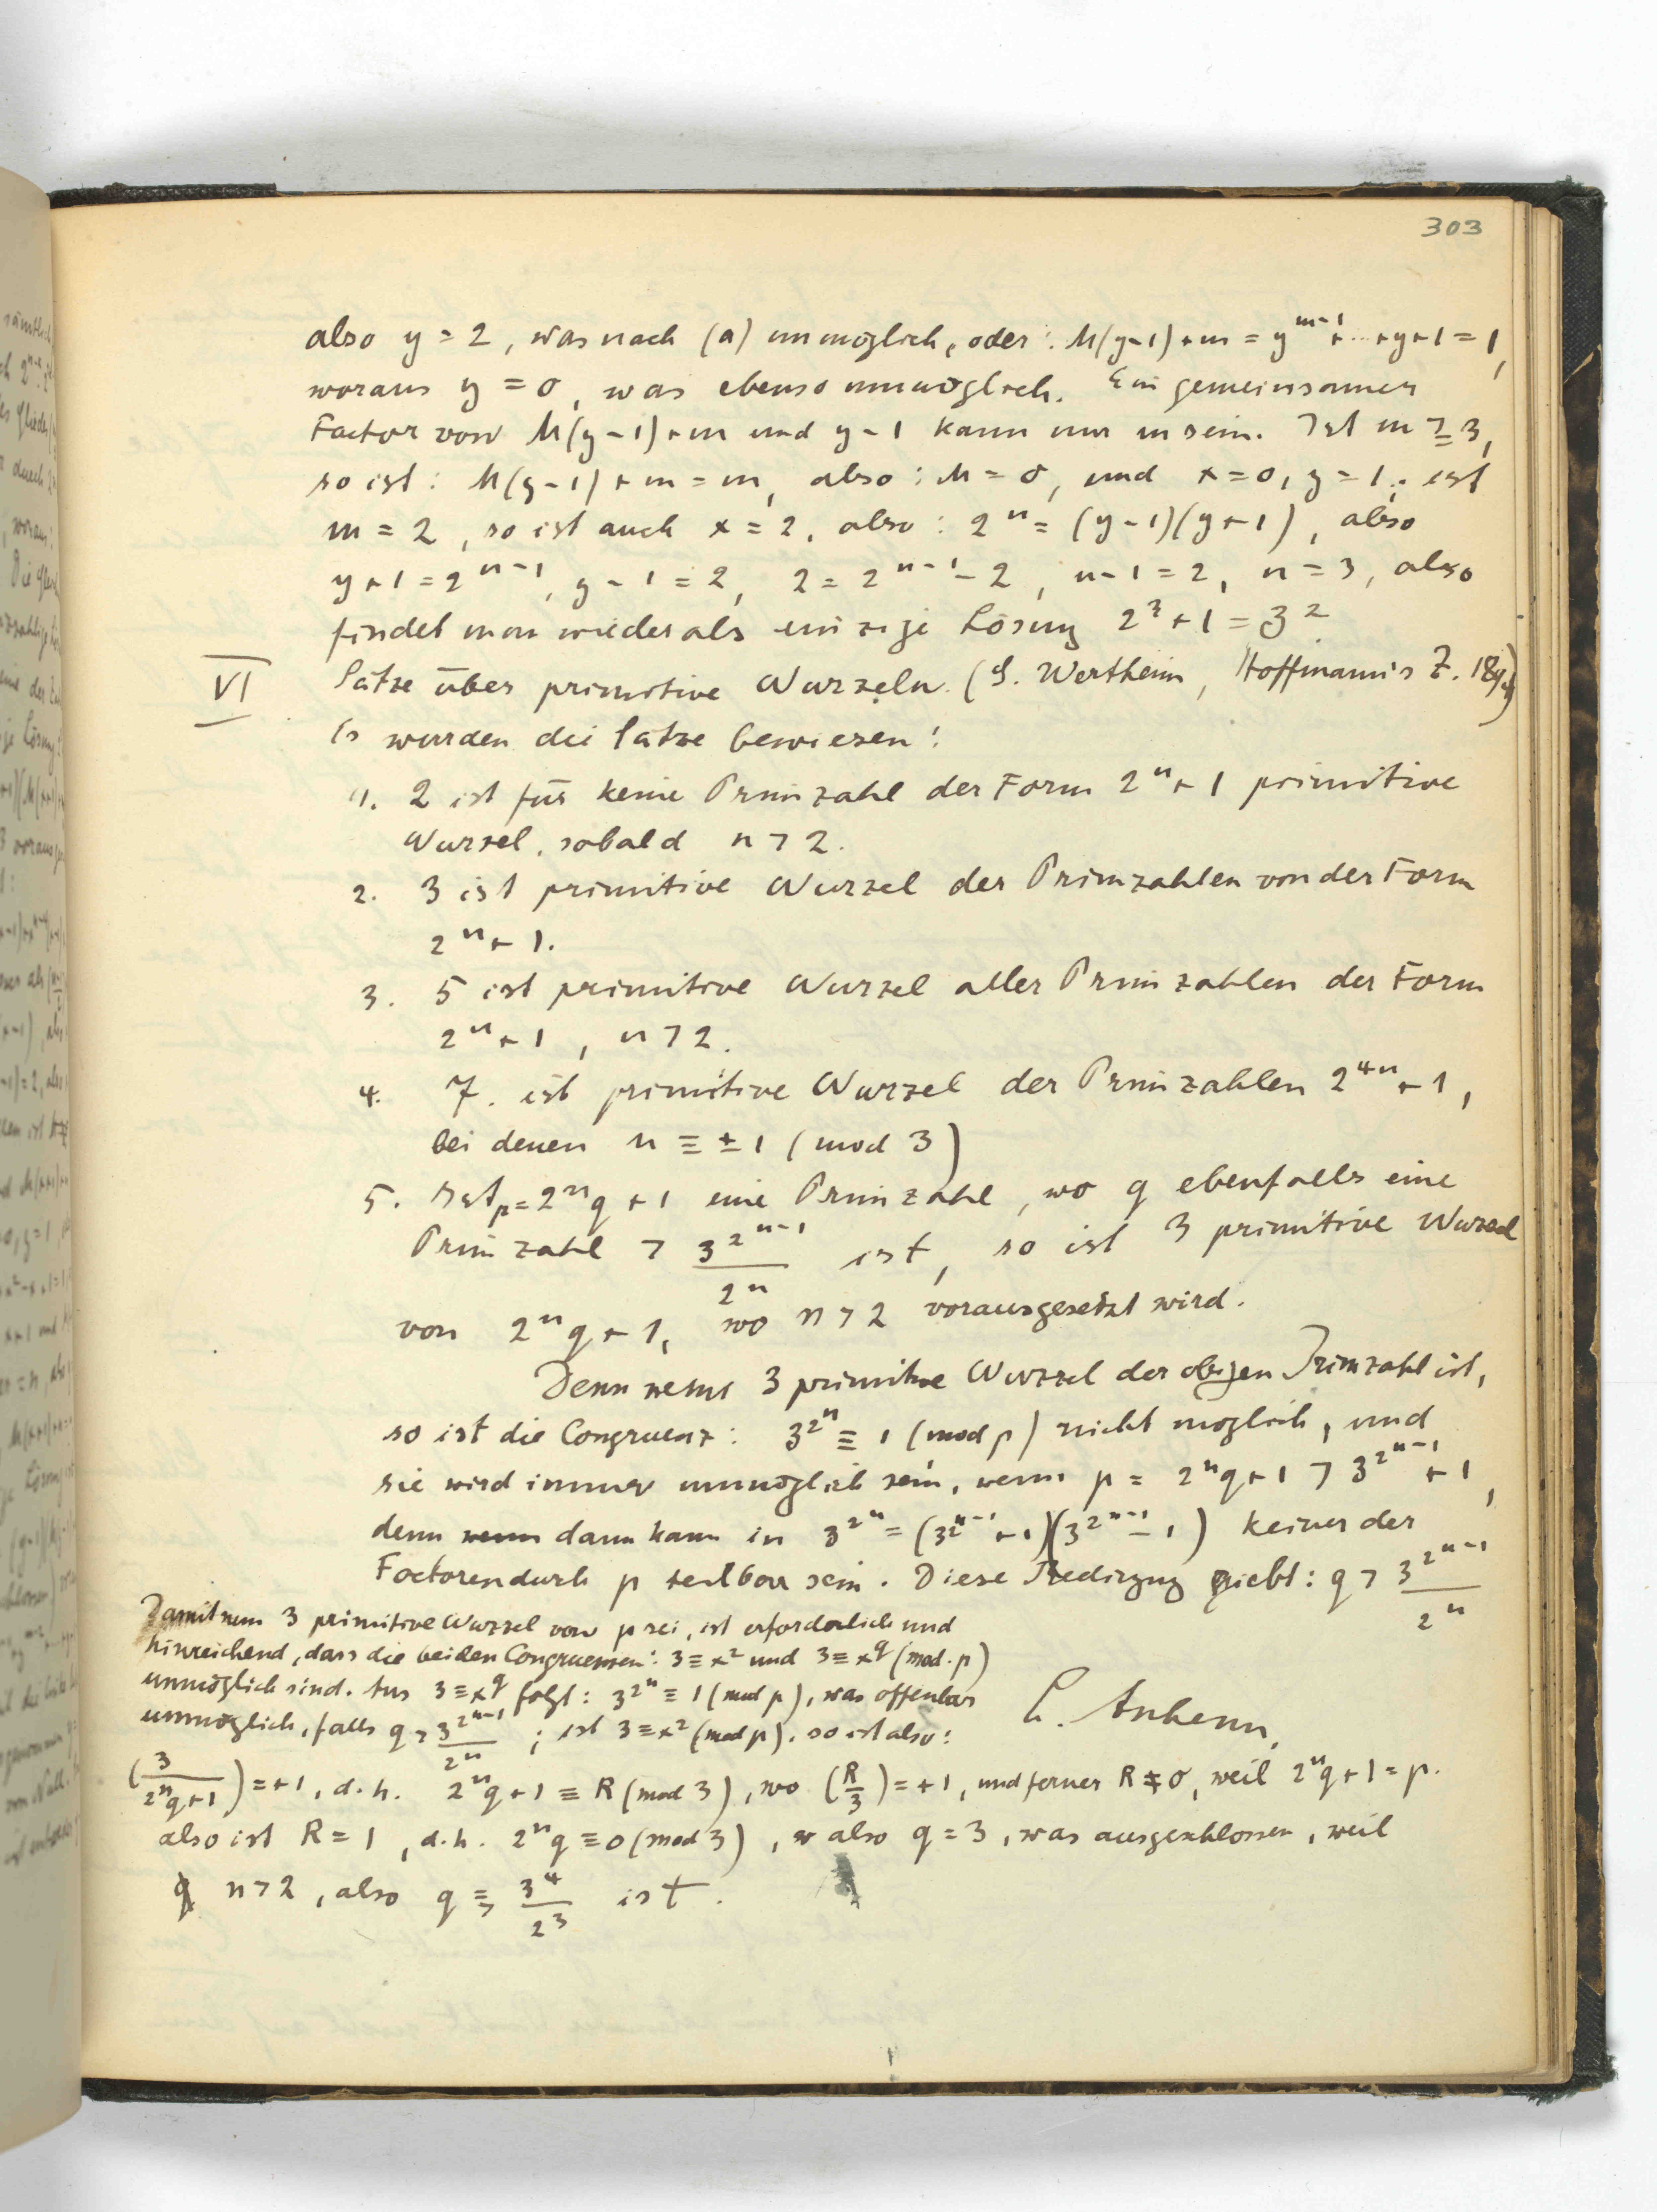 303
also y = 2, was nach (a) unmöglich, oder: M(y-1)+m = y^{m-1}+...+y+1 = 1,
woraus y = 0, was ebenso unmöglich. Ein gemeinsamer
Factor von M(y-1)+m und y-1 kann nur m sein. Ist m ≧ 3,
so ist: M(y-1)+m = m, also: M = 0, und x=0, y=1; ist
m = 2, so ist auch x = 2, also: 2^n = (y-1)(y+1), also
y+1 = 2^{n-1}, y-1 = 2, 2 = 2^{n-1}-2, n-1 = 2, n = 3, also
findet man wieder als einzige Lösung 2^3+1 = 3^2
VI Sätze über primitive Wurzeln. (G. Wertheim, Hoffmann's Z. 1894)
Es wurden die Sätze bewiesen:
1. 2 ist für keine Primzahl der Form 2^n+1 primitive
Wurzel, sobald n > 2.
2. 3 ist primitive Wurzel der Primzahlen von der Form
2^n+1.
3. 5 ist primitive Wurzel aller Primzahlen der Form
2^n+1, n > 2.
4. 7. ist primitive Wurzel der Primzahlen 2^{4n}+1,
bei denen n ≡ ±1 (mod 3)
5. Ist p = 2^n q+1 eine Primzahl, wo q ebenfalls eine
Primzahl > \frac{3^{2^{n-1}}}{2^n} ist, so ist 3 primitive Wurzel
von 2^n q+1, wo n > 2 vorausgesetzt wird.
Denn 3 primitive Wurzel der obigen Primzahl ist,
so ist die Congruenz: 3^{2^n} ≡ 1 (mod p) nicht möglich, und
sie wird immer unmöglich sein, wenn p = 2^n q+1 > 3^{2^{n-1}}+1,
denn wenn dann kann in 3^{2^n} = (3^{2^{n-1}}+1)(3^{2^{n-1}}-1) keiner der
Factoren durch p teilbar sein. Diese Bedingung giebt: q > \frac{3^{2^{n-1}}}{2^n}
Damit nun 3 primitive Wurzel von p sei, ist erforderlich und
hinreichend, dass die beiden Congruenzen: 3 ≡ x^2 und 3 ≡ x^q (mod. p)
unmöglich sind. Aus 3 ≡ x^q folgt: 3^{2^n} ≡ 1 (mod p), was offenbar
unmöglich, falls q > \frac{3^{2^{n-1}}}{2^n}; ist 3 ≡ x^2 (mod p), so ist also:
(\frac{3}{2^n q+1}) = +1, d.h. 2^n q+1 ≡ R (mod 3), wo (\frac{R}{3}) = +1, und ferner R ≠ 0, weil 2^n q+1 = p.
also ist R = 1, d.h. 2^n q ≡ 0 (mod 3), also q = 3, was ausgeschlossen, weil
n > 2, also q ≧ \frac{3^4}{2^3} ist.